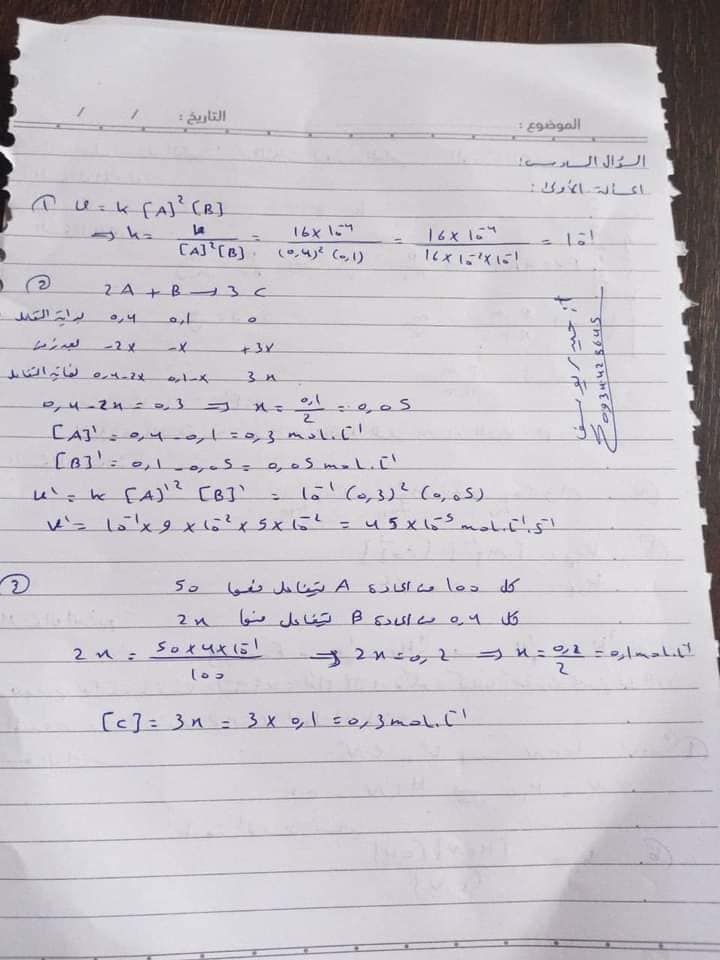 الموضوع : التاريخ : / /
السؤال السادس:
الحالة الأولى :
① v = k [A]² [B]
⇒ k = v / [A]²[B] = 16 × 10⁻⁴ / (0,4)² (0,1) = 16 × 10⁻⁴ / 16 × 10⁻² × 10⁻¹ = 10⁻¹
② 2A + B → 3C
بداية التفاعل 0,4 0,1 0
بعد زمن -2x -x +3x
نهاية التفاعل 0,4-2x 0,1-x 3x
0,4 - 2x = 0,3 ⇒ x = 0,1 / 2 = 0,05
[A]' = 0,4 - 0,1 = 0,3 mol.l⁻¹
[B]' = 0,1 - 0,05 = 0,05 mol.l⁻¹
v' = k [A]'² [B]' = 10⁻¹ (0,3)² (0,05)
v' = 10⁻¹ × 9 × 10⁻² × 5 × 10⁻² = 45 × 10⁻⁵ mol.l⁻¹.s⁻¹
③ كل 100 من المادة A يتفاعل منها 50
كل 0,4 من المادة B يتفاعل منها 2x
2x = 50 × 4 × 10⁻¹ / 100 ⇒ 2x = 0,2 ⇒ x = 0,2 / 2 = 0,1 mol.l⁻¹
[C] = 3x = 3 × 0,1 = 0,3 mol.l⁻¹